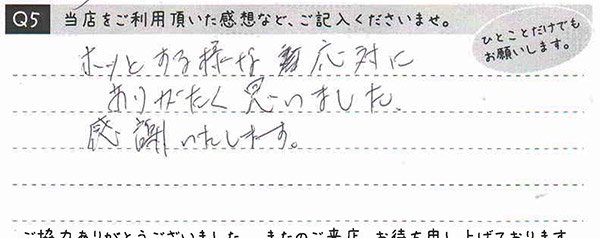 Q5 当店をご利用頂いた感想など、ご記入くださいませ。
ひとことだけでも
お願いします。
ホッとする様な応対に
ありがたく思いました、
感謝いたします。
ご協力ありがとうございました。またのご来店、お待ち申し上げております